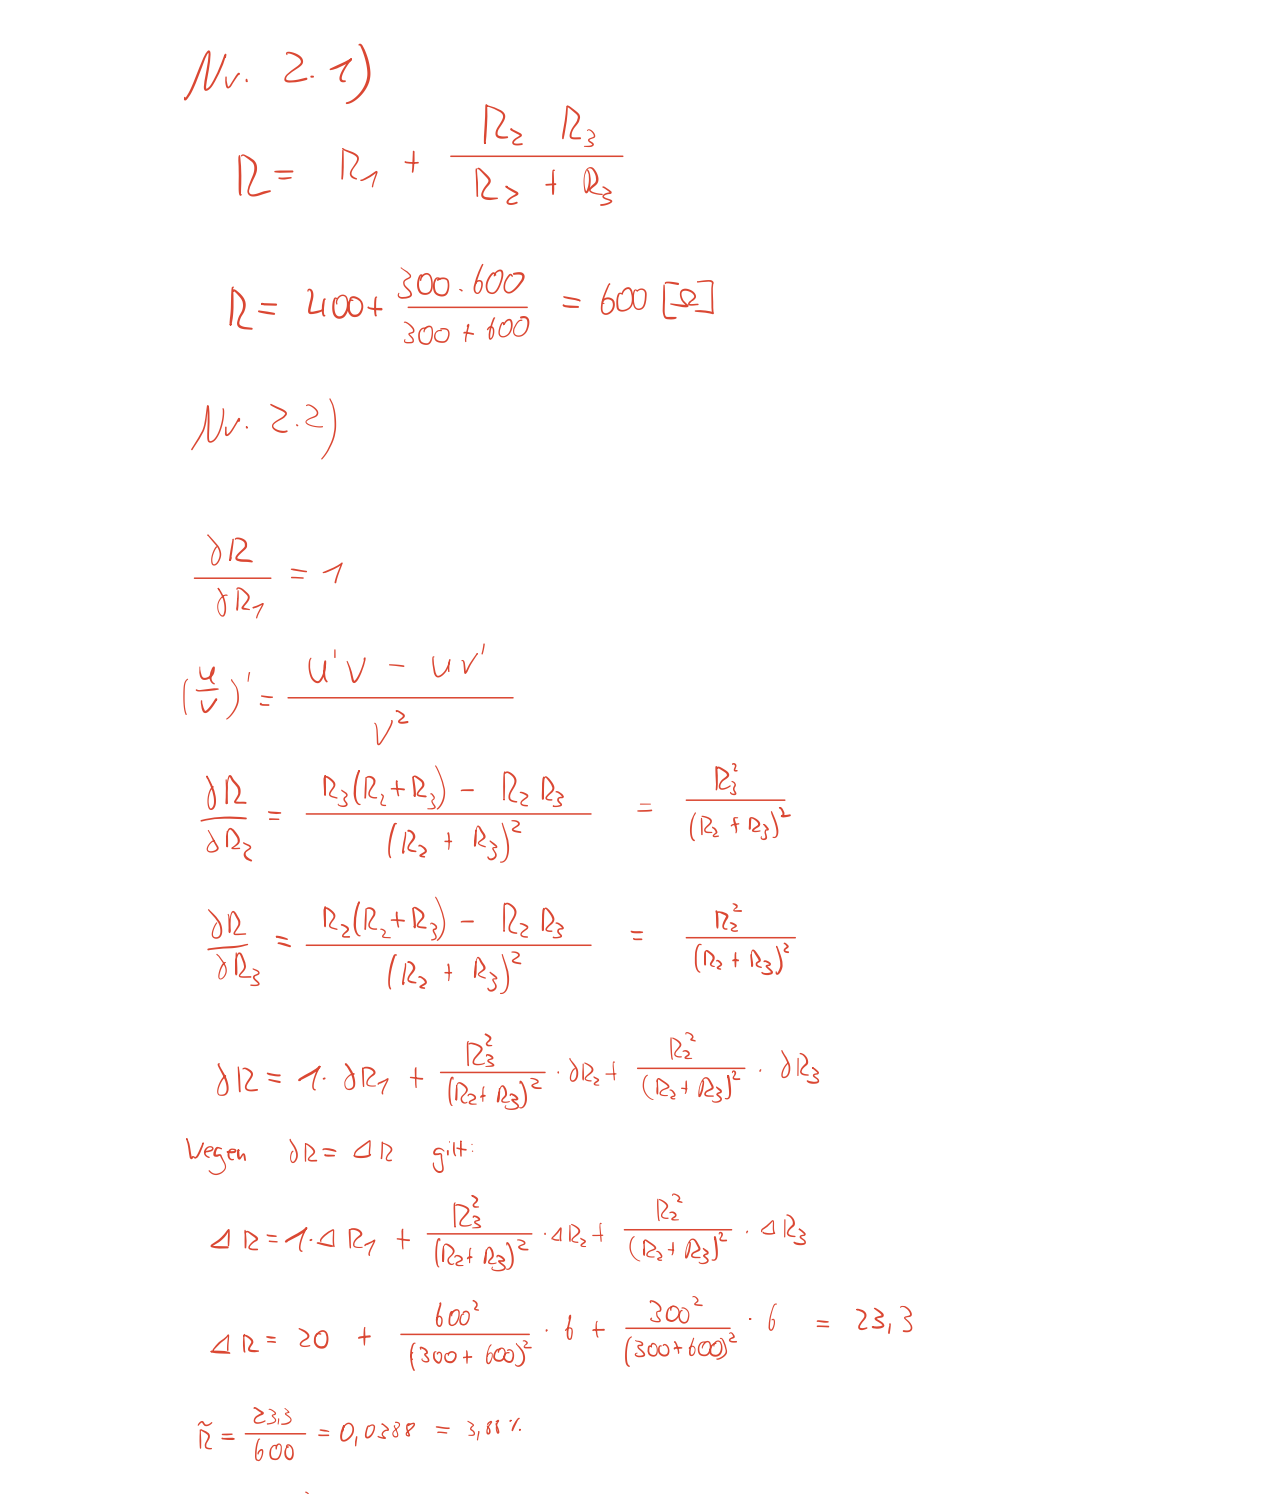 Nr. 2.1)
R = R₁ + (R₂ R₃)/(R₂ + R₃)
R = 400 + (300 · 600)/(300 + 600) = 600 [Ω]
Nr. 2.2)
∂R/∂R₁ = 1
(u/v)' = (u'v - uv')/v²
∂R/∂R₂ = (R₃(R₂+R₃) - R₂ R₃)/(R₂ + R₃)² = R₃²/(R₂ + R₃)²
∂R/∂R₃ = (R₂(R₂+R₃) - R₂ R₃)/(R₂ + R₃)² = R₂²/(R₂ + R₃)²
∂R = 1 · ∂R₁ + R₃²/(R₂+R₃)² · ∂R₂ + R₂²/(R₂+R₃)² · ∂R₃
Wegen ∂R = ΔR gilt:
ΔR = 1 · ΔR₁ + R₃²/(R₂+R₃)² · ΔR₂ + R₂²/(R₂+R₃)² · ΔR₃
ΔR = 20 + 600²/(300+600)² · 6 + 300²/(300+600)² · 6 = 23,3
R̃ = 23,3/600 = 0,0388 = 3,88%